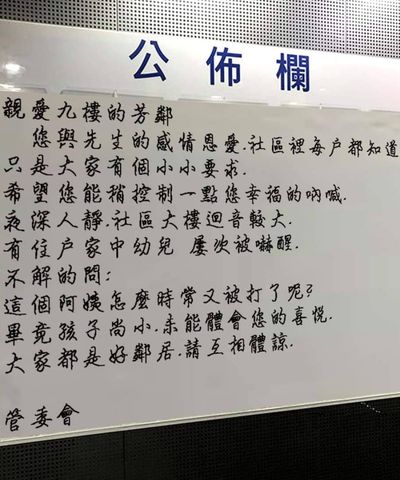 公佈欄
親愛九樓的芳鄰
您與先生的感情恩愛.社區裡每戶都知道
只是大家有個小小要求.
希望您能稍控制一點您幸福的吶喊.
夜深人靜.社區大樓迴音較大.
有住戶家中幼兒 屢次被嚇醒.
不解的問:
這個阿姨怎麼時常又被打了呢?
畢竟孩子尚小.未能體會您的喜悅.
大家都是好鄰居.請互相體諒.
管委會